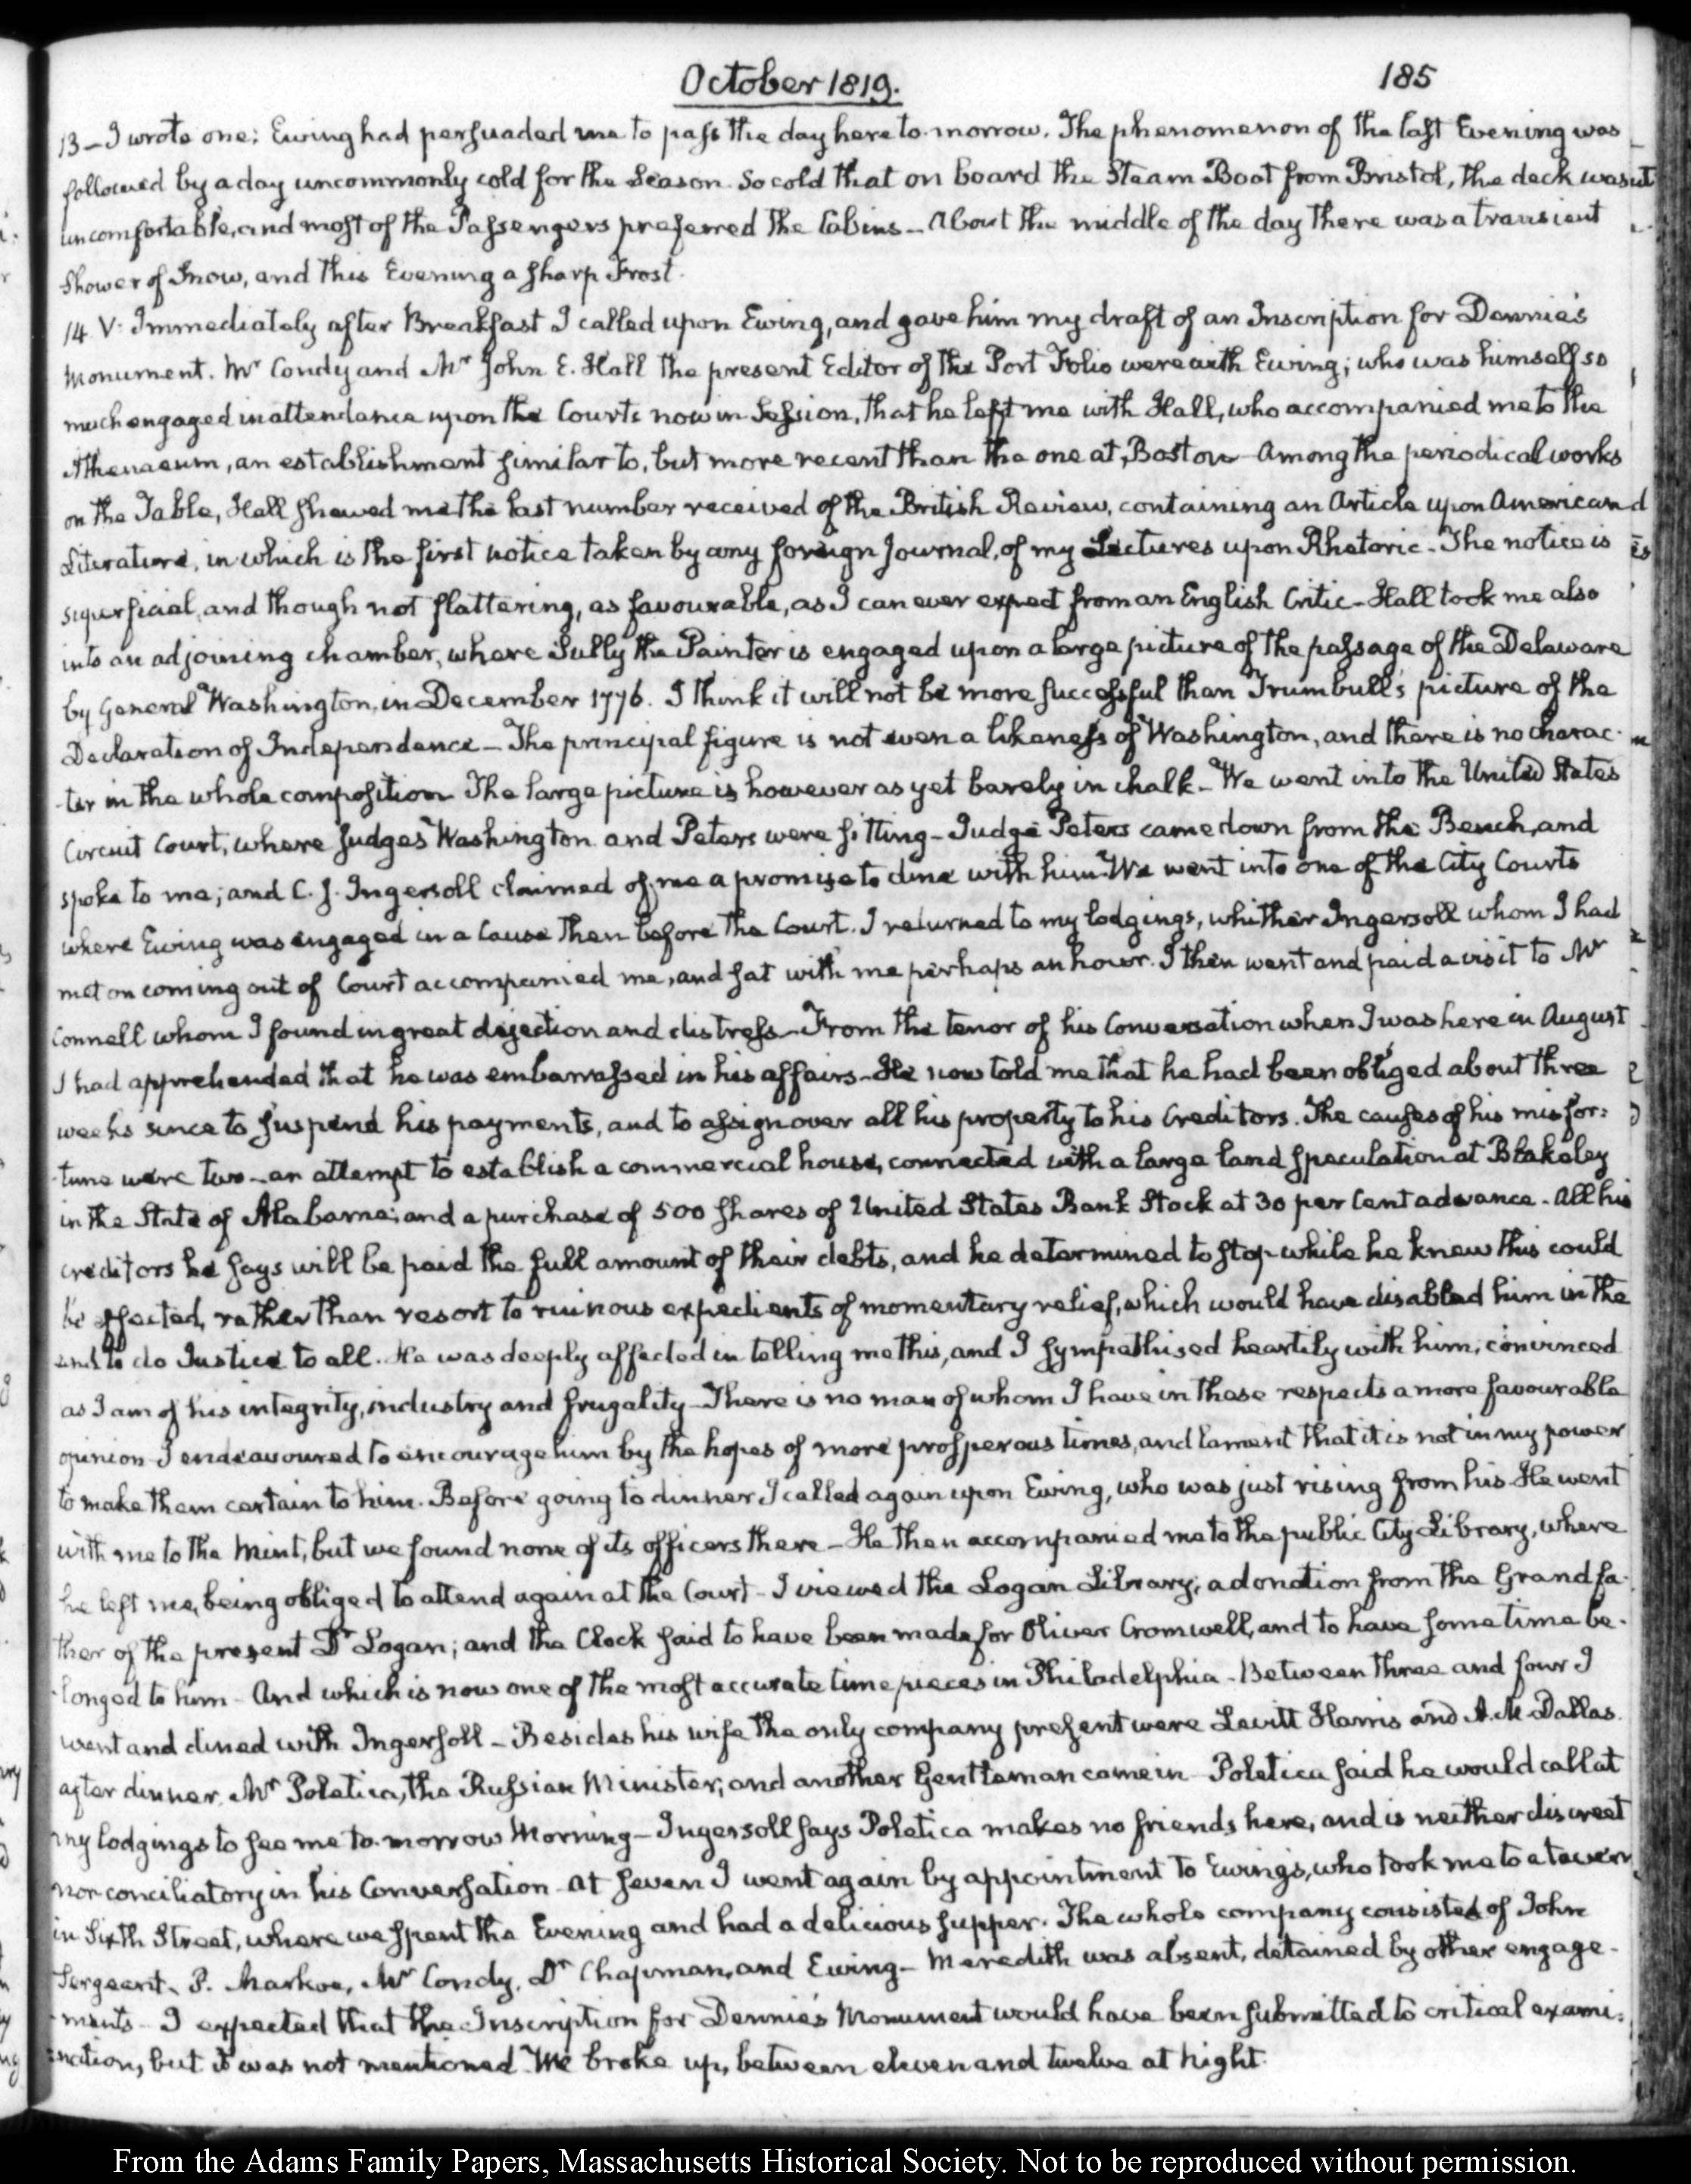 October 1819.
185
13 – I wrote one; Ewing had persuaded me to pass the day here to-morrow. The phenomenon of the last Evening was
followed by a day uncommonly cold for the Season. So cold that on board the Steam Boat from Bristol, the deck was
uncomfortable, and most of the Passengers preferred the Cabins – About the middle of the day there was a transient
Shower of Snow, and this Evening a sharp Frost.
14 V: Immediately after Breakfast I called upon Ewing, and gave him my draft of an Inscription for Dennie's
Monument. Mr Condy and Mr John E. Hall the present Editor of the Port Folio were with Ewing; who was himself so
much engaged in attendance upon the Courts now in Session, that he left me with Hall, who accompanied me to the
Athenaeum, an establishment similar to, but more recent than the one at Boston – Among the periodical works
on the Table, Hall shewed me the last number received of the British Review, containing an Article upon American
Literature, in which is the first notice taken by any foreign Journal, of my Lectures upon Rhetoric – The notice is
superficial, and though not flattering, as favourable, as I can ever expect from an English Critic – Hall took me also
into an adjoining chamber, where Sully the Painter is engaged upon a large picture of the passage of the Delaware
by General Washington, in December 1776. I think it will not be more successful than Trumbull's picture of the
Declaration of Independence – The principal figure is not even a likeness of Washington, and there is no charac-
-ter in the whole composition The large picture is however as yet barely in chalk – We went into the United States
Circuit Court, where Judges Washington and Peters were sitting – Judge Peters came down from the Bench, and
spoke to me; and C. J. Ingersoll claimed of me a promise to dine with him. We went into one of the City Courts
where Ewing was engaged in a Cause then before the Court. I returned to my lodgings, whither Ingersoll whom I had
met on coming out of Court accompanied me, and sat with me perhaps an hour. I then went and paid a visit to Mr
Connell whom I found in great dejection and distress – From the tenor of his Conversation when I was here in August
I had apprehended that he was embarrassed in his affairs – He now told me that he had been obliged about three
weeks since to suspend his payments, and to assign over all his property to his Creditors. The causes of his misfor:
-tune were two – an attempt to establish a commercial house, connected with a large land speculation at Blakeley
in the State of Alabama; and a purchase of 500 shares of United States Bank Stock at 30 per Cent advance – All his
creditors he says will be paid the full amount of their debts, and he determined to stop while he knew this could
be effected, rather than resort to ruinous expedients of momentary relief, which would have disabled him in the
end to do Justice to all. He was deeply affected in telling me this, and I sympathised heartily with him; convinced
as I am of his integrity, industry and frugality – There is no man of whom I have in these respects a more favourable
opinion – I endeavoured to encourage him by the hopes of more prosperous times, and lament that it is not in my power
to make them certain to him. Before going to dinner I called again upon Ewing, who was just rising from his – He went
with me to the Mint, but we found none of its officers there – He then accompanied me to the public City Library, where
he left me, being obliged to attend again at the Court – I viewed the Logan Library; a donation from the Grandfa-
ther of the present Dr Logan; and the Clock said to have been made for Oliver Cromwell, and to have some time be-
-longed to him – And which is now one of the most accurate time pieces in Philadelphia – Between three and four I
went and dined with Ingersoll – Besides his wife the only company present were Levitt Harris and A. M. Dallas.
after dinner, Mr Poletica, the Russian Minister, and another Gentleman came in – Poletica said he would call at
my lodgings to see me to-morrow Morning – Ingersoll says Poletica makes no friends here, and is neither discreet
nor conciliatory in his Conversation – At seven I went again by appointment to Ewing's, who took me to a tavern
in Sixth Street, where we spent the Evening and had a delicious supper. The whole company consisted of John
Sergeant, P. Markoe, Mr Condy, Dr Chapman, and Ewing – Meredith was absent, detained by other engage-
-ments – I expected that the Inscription for Dennie's Monument would have been submitted to critical exami:
:nation, but it was not mentioned. We broke up, between eleven and twelve at Night.
From the Adams Family Papers, Massachusetts Historical Society. Not to be reproduced without permission.